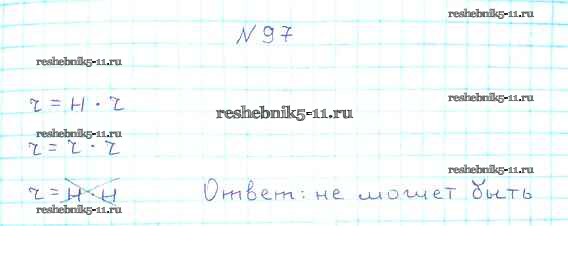 reshebnik5-11.ru
№ 97
reshebnik5-11.ru
reshebnik5-11.ru
ч = н · ч
reshebnik5-11.ru
reshebnik5-11.ru
ч = ч · ч
reshebnik5-11.ru
ч = н · н
Ответ: не может быть
reshebnik5-11.ru